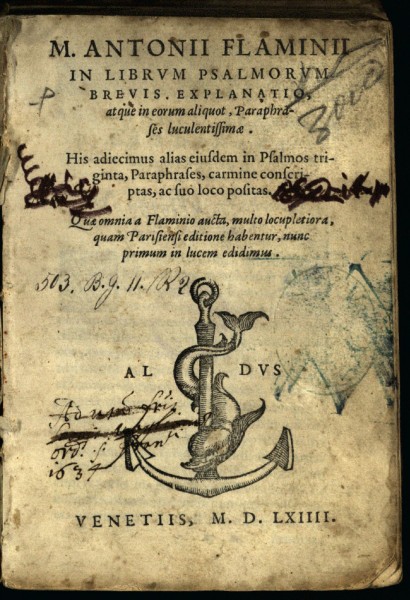 M. ANTONII FLAMINII
IN LIBRVM PSALMORVM
BREVIS EXPLANATIO,
atque in eorum aliquot, Paraphra-
ses luculentissimæ.
3000
His adiecimus alias eiusdem in Psalmos tri-
ginta, Paraphrases, carmine conscri-
ptas, ac suo loco positas.
Quæ omnia a Flaminio aucta, multo locupletiora,
quam Parisiensi editione habentur, nunc
primum in lucem edidimus.
503. B.g. 11.
ALDVS
Ad usum
ord.
1634
VENETIIS, M. D. LXIIII.